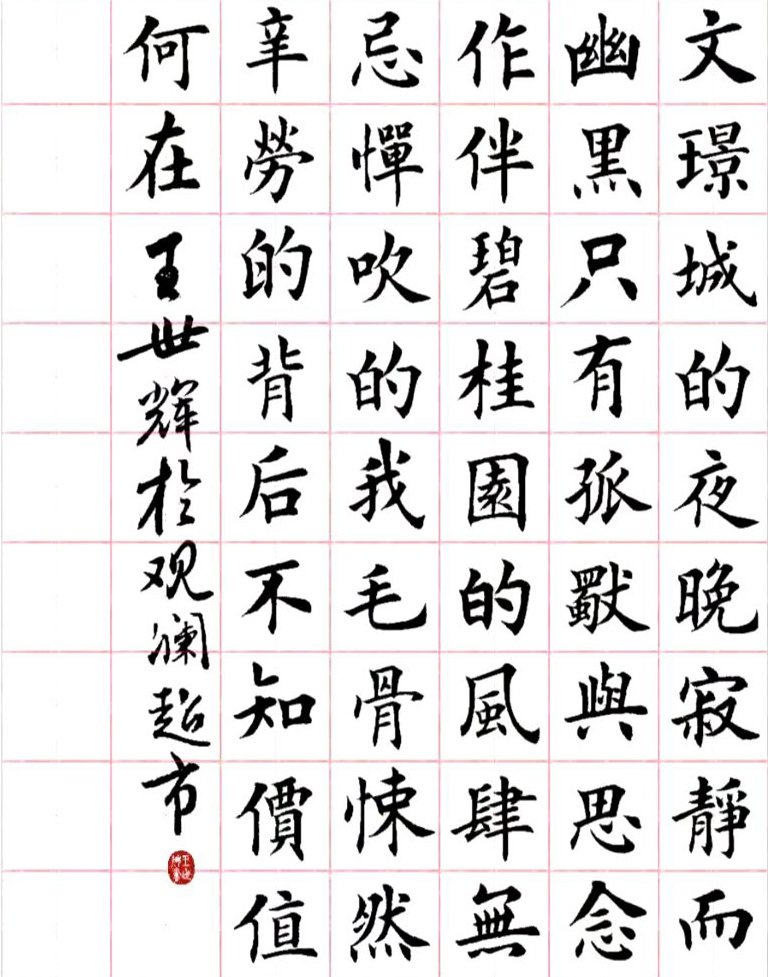 文璟城的夜晚寂靜而
幽黑只有孤獸與思念
作伴碧桂園的風肆無
忌憚吹的我毛骨悚然
辛勞的背后不知價值
何在王世辉於观澜超市